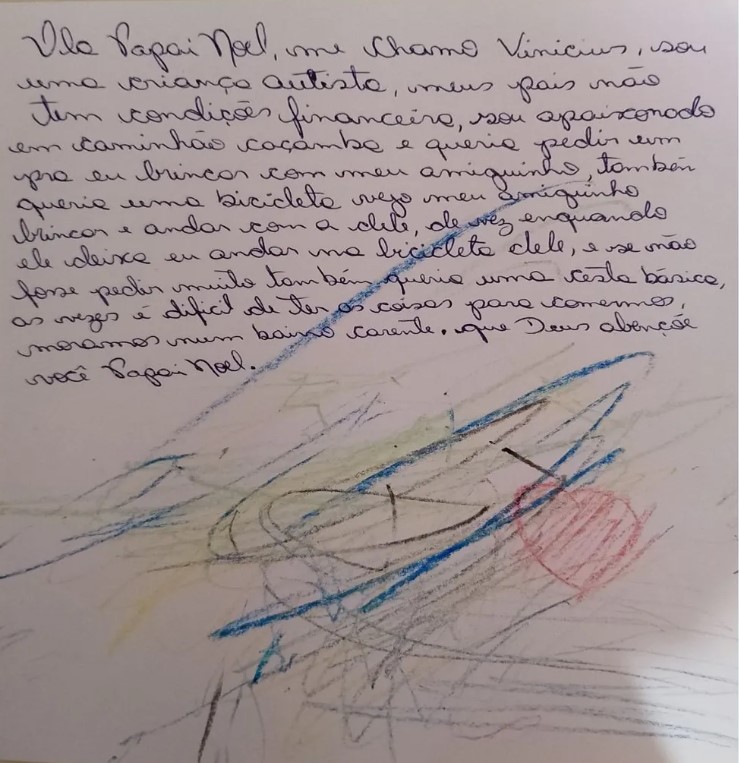 Ola Papai Noel, me chamo Vinicius, sou
uma criança autista, meus pais não
tem condições financeira, sou apaixonado
em caminhão caçamba e queria pedir um
pra eu brincar com meu amiguinho, também
queria uma bicicleta vejo meu amiguinho
brincar e andar com a dele, de vez enquando
ele deixa eu andar na bicicleta dele, e se não
fosse pedir muito também queria uma cesta básica,
as vezes é dificil de ter as coisas para comermos,
moramos num bairro carente. que Deus abençõe
você Papai Noel.